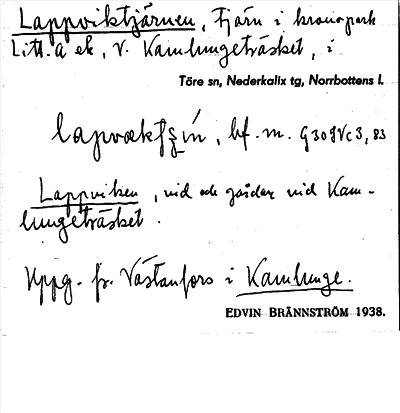 Lappviktjärnen, tjärn i kronopark
Litt. a ek, v. Kamlungeträsket, i
Töre sn, Nederkalix tg, Norrbottens l.
bf. m. G30 83
Lappviken, vid och gårdar vid Kam-
lungeträsket.
Uppg. fr. Västanfors i Kamlunge.
EDVIN BRÄNNSTRÖM 1938.